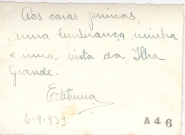 Aos caros primos,
uma lembrança minha
e uma vista da Ilha
Grande.
6-9-939
A46